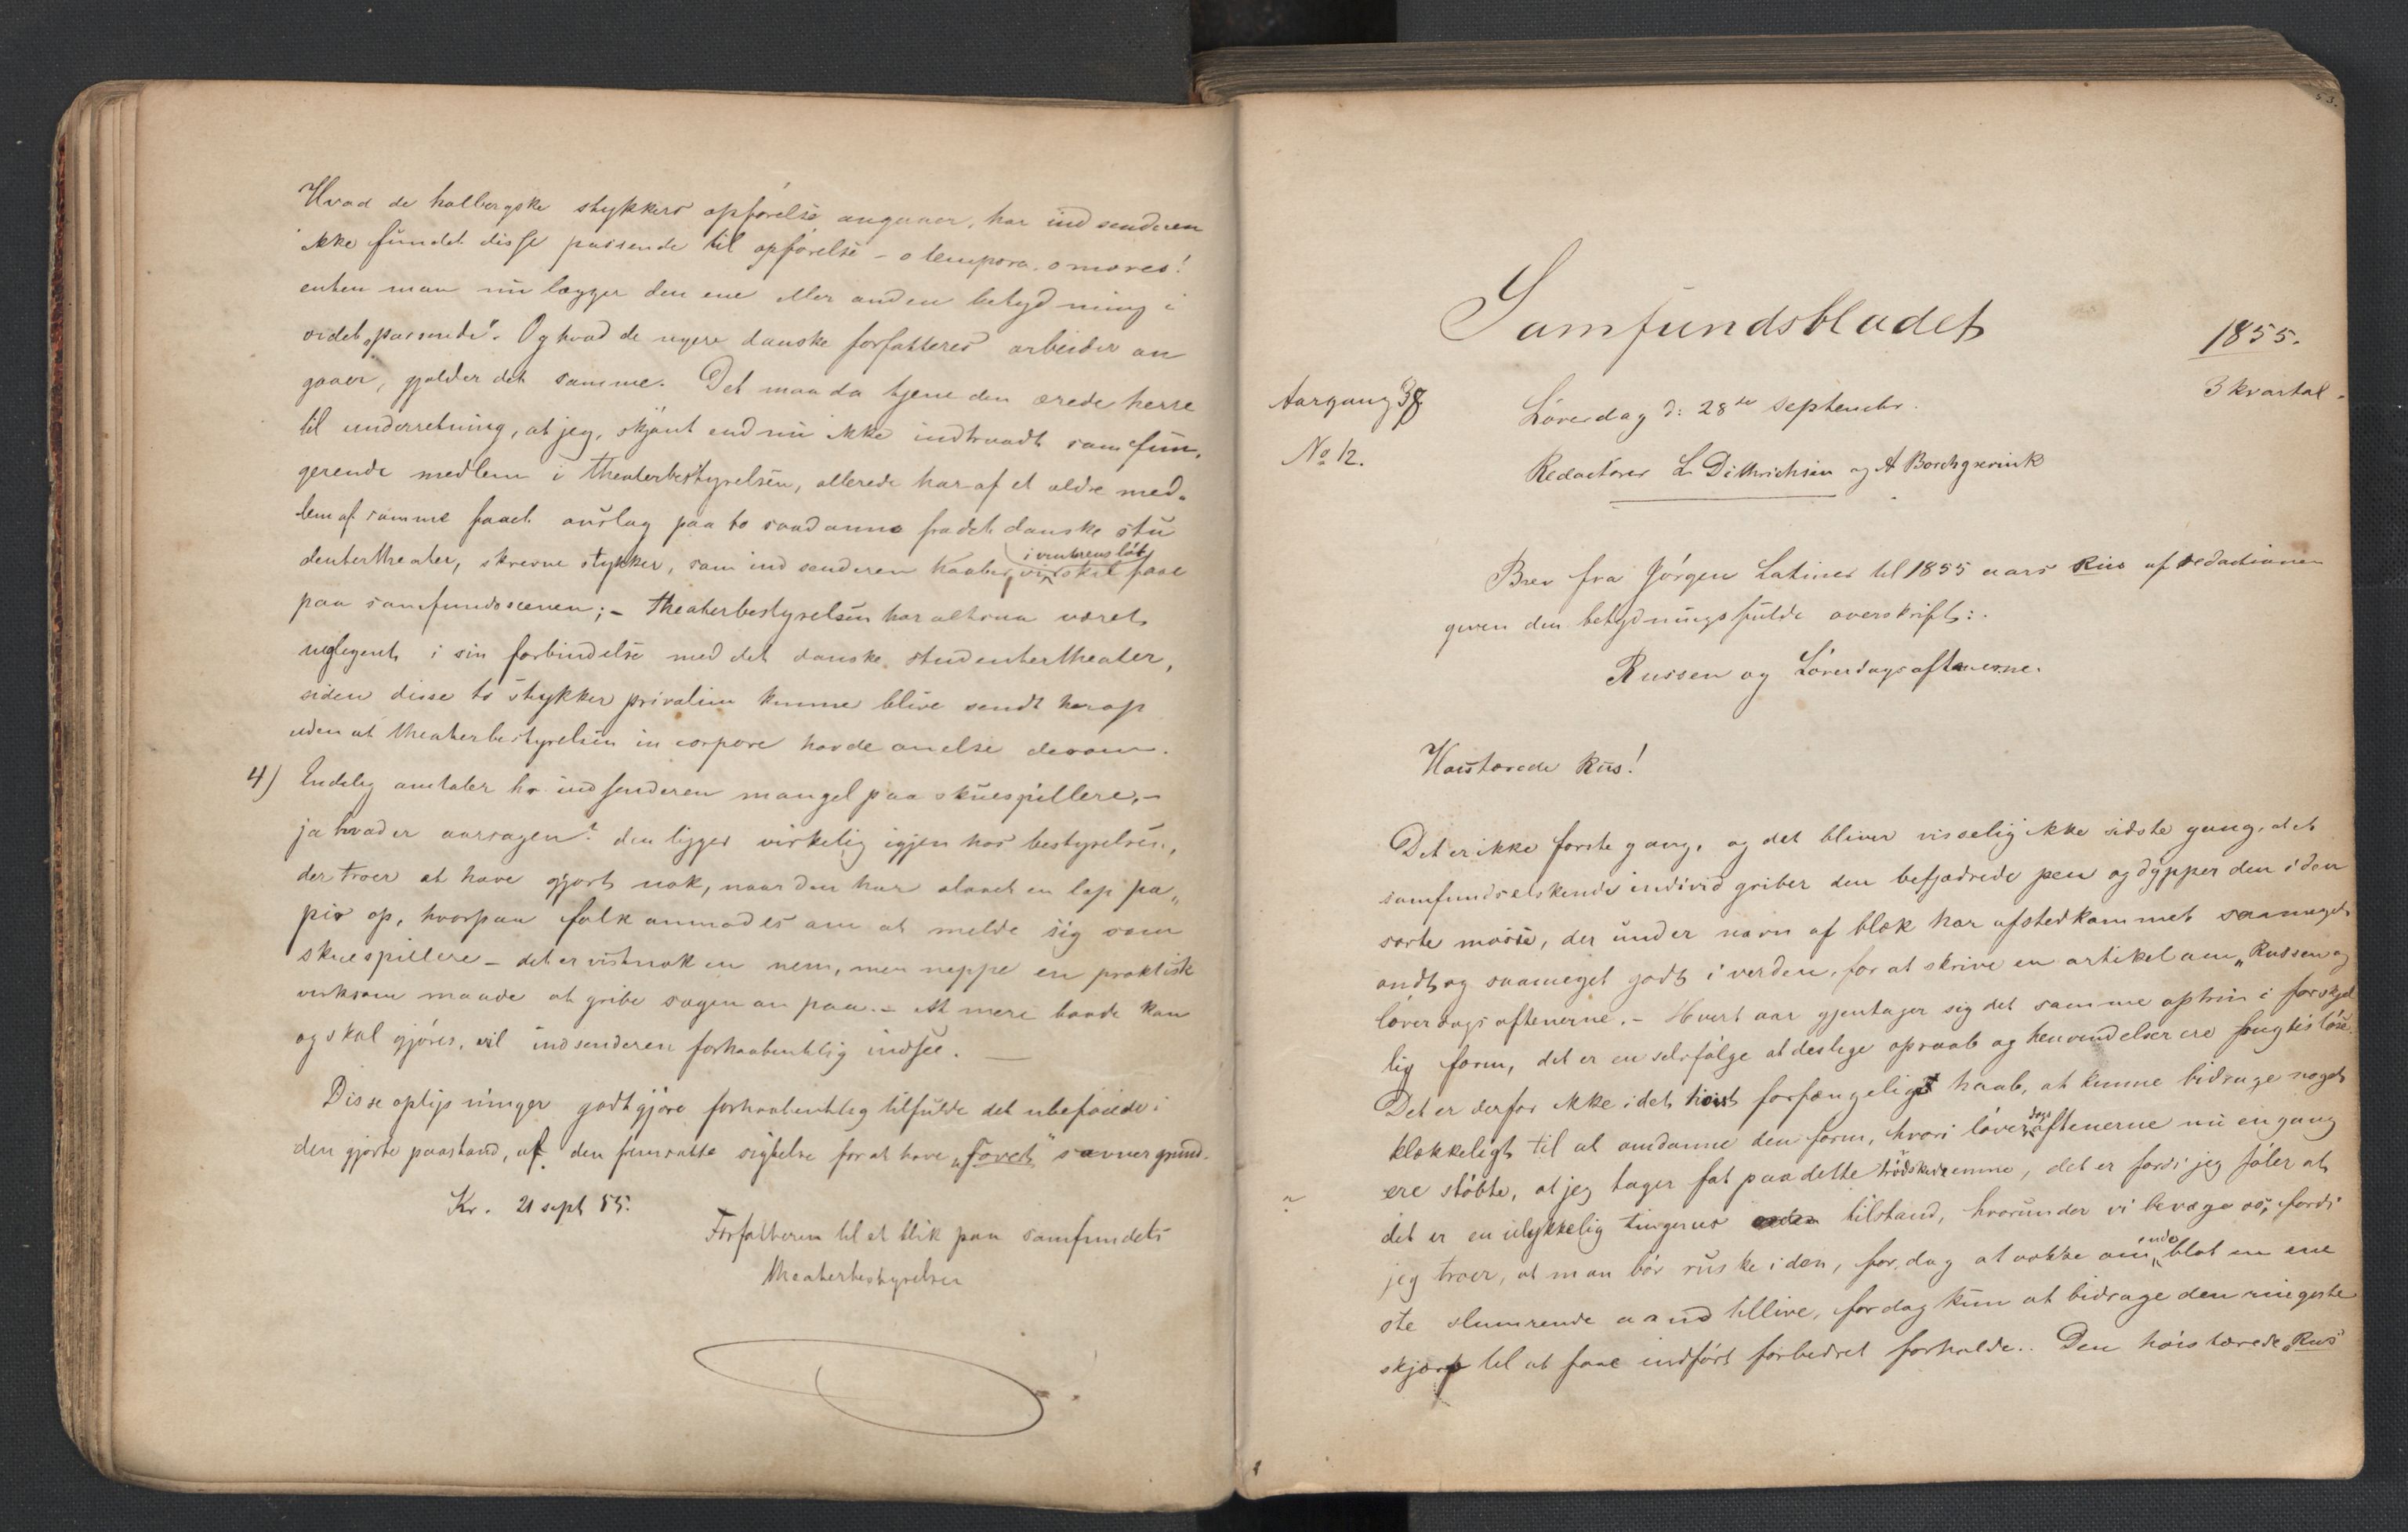 Hvad de holbergske stykkers opførelse angaaer, har indsenderen
ikke fundet disse passende til opførelse – o tempora, o mores!
enten man nu lægger den ene eller anden betydning i
ordet „passende". Og hvad de nyere danske forfatteres arbeider an
gaaer, gjælder det samme. Det maa da tjene den ærede herre
til underretning, at jeg, skjønt endnu ikke indtraadt som fun-
gerende medlem i theaterbestyrelsen, allerede har af et ældre med-
lem af samme faaet anslag paa to saadanne fra det danske stu
dentertheater, skrevne stykker, som indsenderen haaber, vi i vinterens løb skal faae
paa samfundsscenen; – theaterbestyrelsen har altsaa været
neglegent i sin forbindelse med det danske studentertheater,
siden disse to stykker privatim kunne blive sendt herop
uden at theaterbestyrelsen in corpore havde anelse derom.
4) Endelig omtaler hr indsenderen mangel paa skuespillere, –
ja hvad er aarsagen? den ligger virkelig igjen hos bestyrelsen,
der troer at have gjort nok, naar den har slaaet en lap pa„
pir op, hvorpaa folk anmodes om at melde sig som
skuespillere – det er vistnok en nem, men neppe en praktisk
virksom maade at gribe sagen an paa. – At mere baade kan
og skal gjøres, vil indsenderen forhaabentlig indsee. –
Disse oplysninger godtgjøre forhaabentlig tilfulde det ubeføiede i
den gjorte paastand, at den fremsatte sigtelse for at have „fores" savner grund.
Kr. 21 sept 55.
Forfatteren til et blik paa samfundets
theaterbestyrelse
53.
Samfundsbladet
1855.
Aargang 38.
3 kvartal.
Løverdag d: 28de septembr.
No 12.
Redactører L Dithrichsen og A Borchgrevink
Brev fra Jørgen Latiner til 1855 aars Rus af redactionen
given den betydningsfulde overskrift:
Russen og Løverdagsaftenerne.
Høistærede Rus!
Det er ikke første gang, og det bliver visselig ikke sidste gang, at et
samfundselskende individ griber den befjædrede pen og dypper den i den
sorte masse, der under navn af blæk har afstedkommet saameget
ondt og saameget godt i verden, for at skrive en artikel om „Russen og
løverdagsaftenerne. – Hvert aar gjentager sig det samme optrin i forskjel
lig form, det er en selvfølge at deslige opraab og henvendelser ere frugtesløse.
Det er derfor ikke i det høist forfængelige haab, at kunne bidrage noget
klækkeligt til at omdanne den form, hvori løverdagsaftenerne nu engang
ere støbte, at jeg tager fat paa dette emne, det er fordi jeg føler at
det er en ulykkelig tingenes tilstand, hvorunder vi bevæge os, fordi
jeg troer, at man bør ruske i den, for dog at vække om end blot en ene
ste slumrende aand tillive, for dog kun at bidrage den ringeste
skjærv til at faae indført forbedret forholde.. Den høistærede Rus